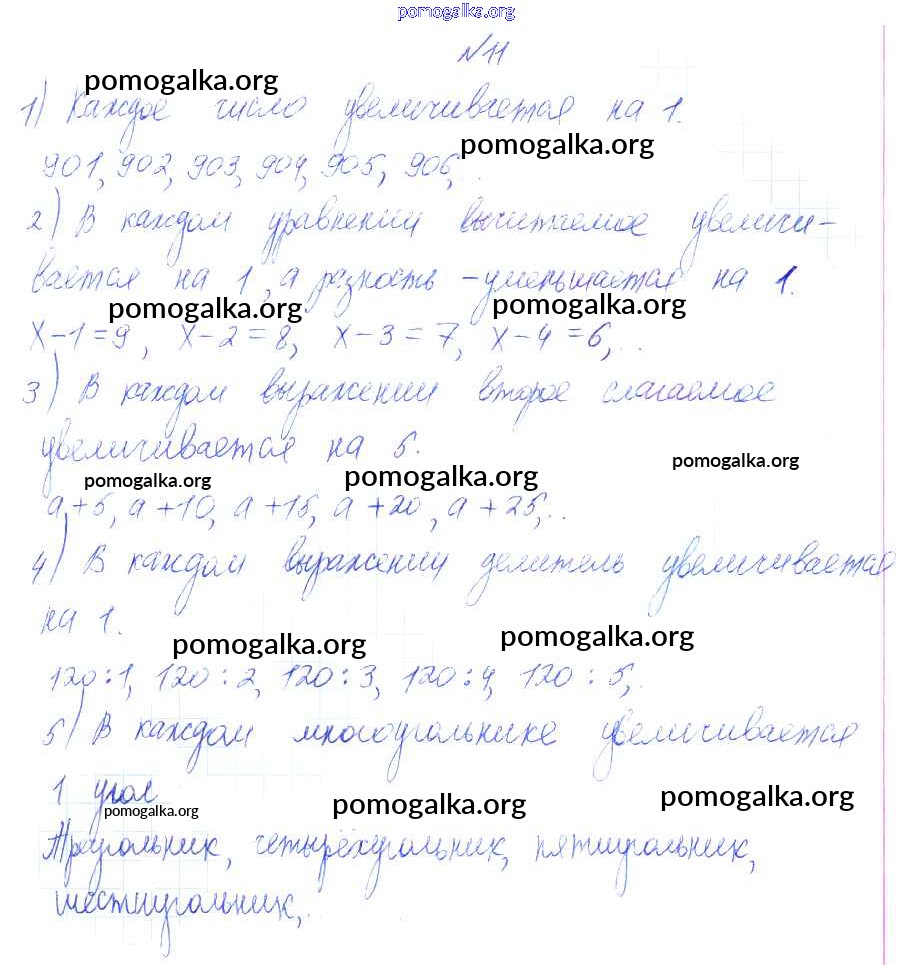 pomogalka.org
№11
pomogalka.org
1) Каждое число увеличивается на 1.
pomogalka.org
901, 902, 903, 904, 905, 906,..
2) В каждом уравнении вычитаемое увеличи-
вается на 1, а разность - уменьшается на 1.
pomogalka.org pomogalka.org
х-1=9, х-2=8, х-3=7, х-4=6,..
3) В каждом выражении второе слагаемое
увеличивается на 5.
pomogalka.org pomogalka.org pomogalka.org
а+5, а+10, а+15, а+20, а+25,..
4) В каждом выражении делитель увеличивается
на 1.
pomogalka.org pomogalka.org
120:1, 120:2, 120:3, 120:4, 120:5,..
5) В каждом многоугольнике увеличивается
1 угол
pomogalka.org pomogalka.org pomogalka.org
Треугольник, четырёхугольник, пятиугольник,
шестиугольник,..